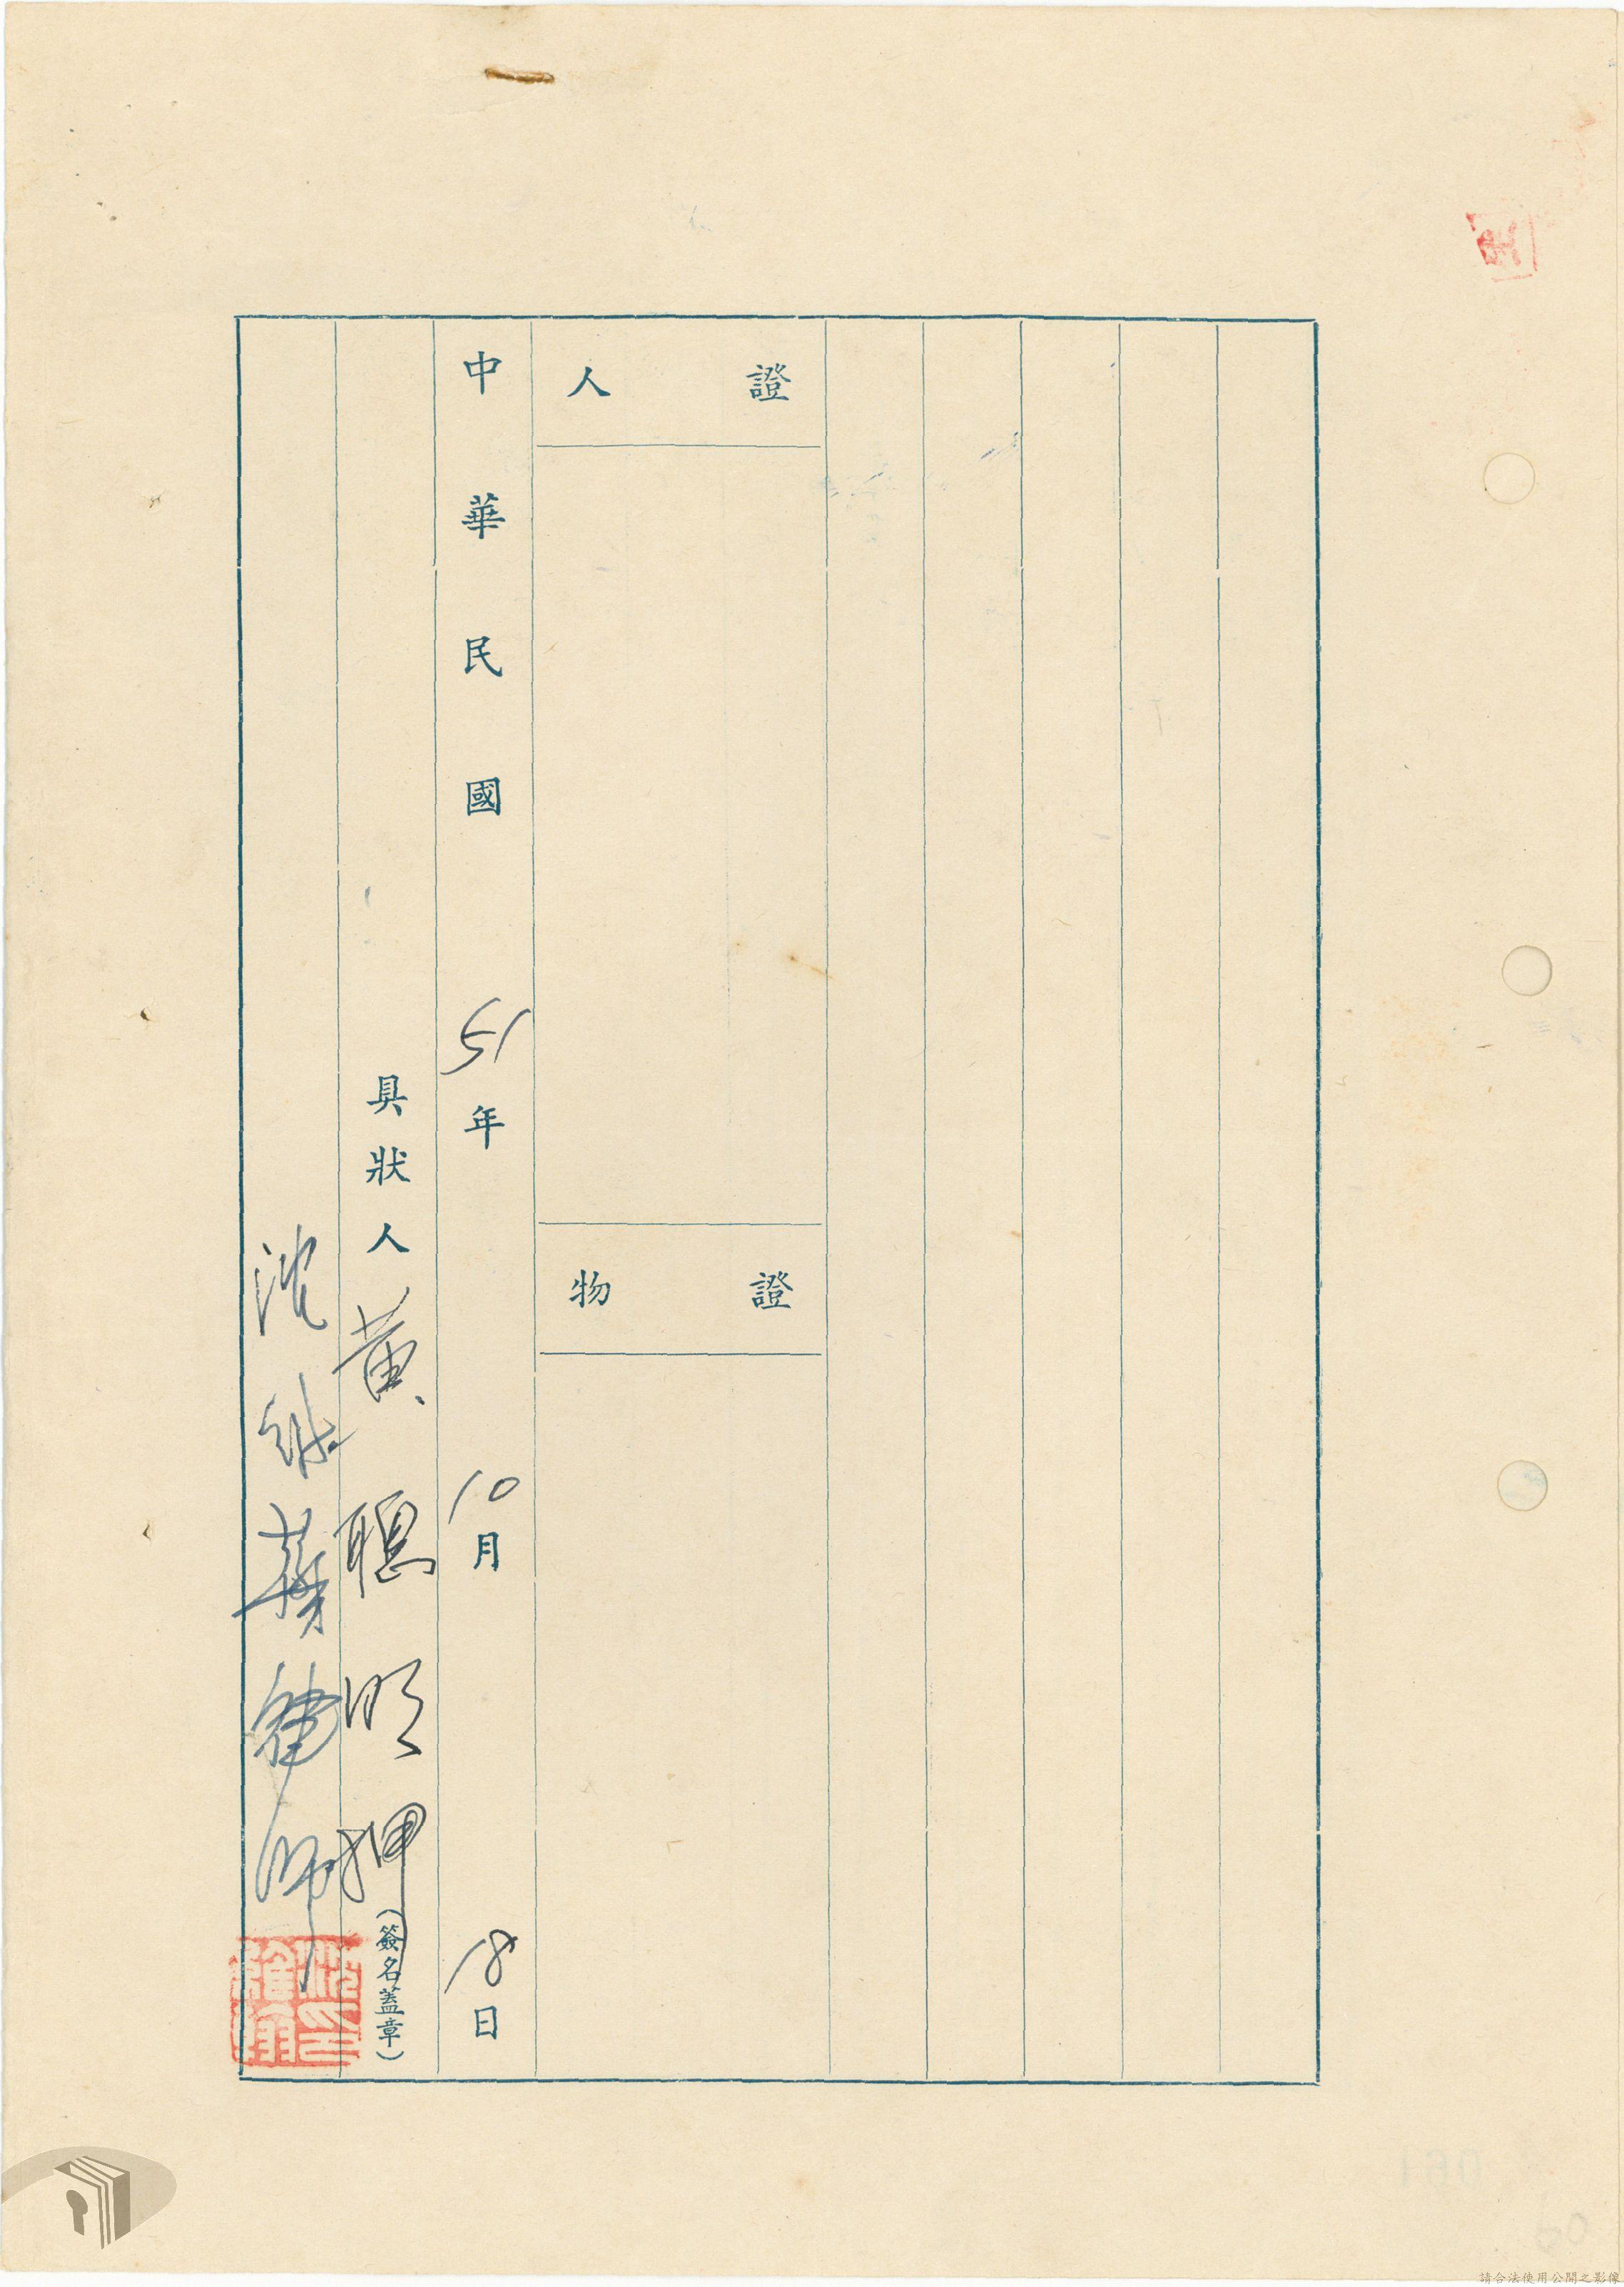 證人
證物
中華民國51年10月18日
具狀人 黃聰明押(簽名蓋章)
沈 律師
請合法使用公開之影像